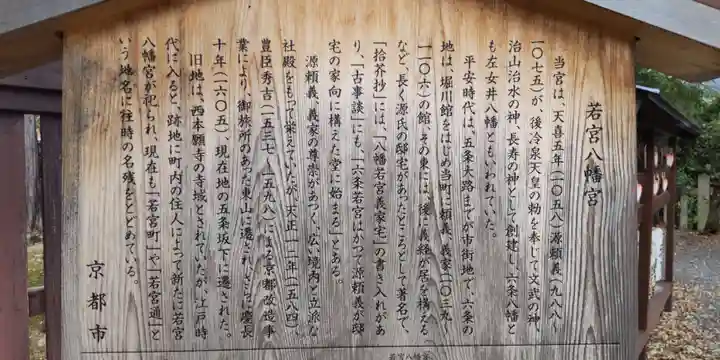 若宮八幡宮
当宮は、天喜五年(一〇五八)源頼義(九八八〜
一〇七五)が、後冷泉天皇の勅を奉じて文武の神、
治山治水の神、長寿の神として創建し、六条八幡と
も左女井八幡ともいわれていた。
平安時代は、五条大路までが市街地で、六条の
地は、堀川館をはじめ当町に頼義、義家(一〇三九〜
一一〇六)の館、その東には、後に義経が居を構える
など、長く源氏の邸宅があったところとして著名で、
「拾芥抄」には、「八幡若宮義家宅」の書き入れがあ
り、「古事談」にも、「六条若宮はかつて源頼義が邸
宅の家向に構えた堂に始まる」とある。
源頼義、義家の尊崇があつく、広い境内と立派な
社殿をもって栄えていたが、天正一二年(一五八四)、
豊臣秀吉(一五三七〜一五九八)による京都改造事
業により、御旅所のあった東山に遷され、さらに慶長
十年(一六〇五)、現在地の五条坂下に遷された。
旧地は、西本願寺の寺城とされていたが、江戸時
代に入ると、跡地に町内の住人によって新たに若宮
八幡宮が祀られ、現在も「若宮町」や「若宮通」と
いう地名に往時の名残をとどめている。
京都市
若宮八幡宮